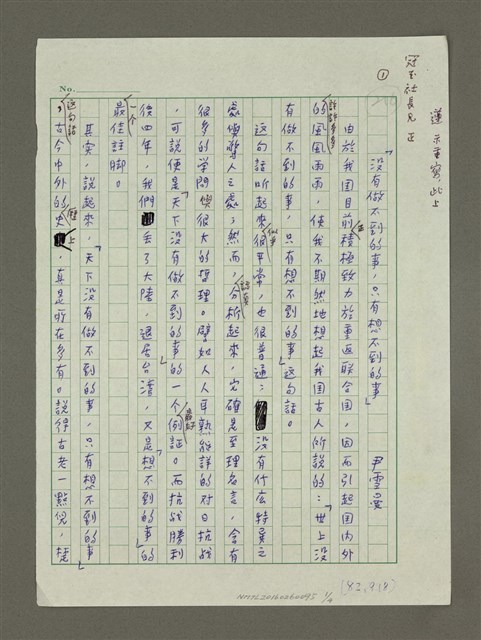 蓮示重寫,此上
冠玉社長兄 正
①
No.
「没有做不到的事,只有想不到的事」
尹雪曼
由於我国目前積極致力於重返联合国,因而引起国内外
許許多多
的風風雨雨,使我不期然地想起我国古人所說的:「世上没
有做不到的事,只有想不到的事」这句話。
这句話听起來很平常,也很普通:没有什広特異之
似乎
處;然而,分析起來,它確是至理名言,含有
認真
很多的学問與很大的哲理。譬如人人耳熟能詳的对日抗战
,可說便是「天下没有做不到的事」的一个例証。而抗战勝利
最好
後四年,我們丢了大陸,退居台湾,又是「想不到的事」的
一个
最佳註脚。
其实,說起來,「天下没有做不到的事,只有想不到的事」
这句話
,古今中外的歷史上,真是所在多有。說得古老一點兒,
(82.9.18)
NMTL20160260095 1/4